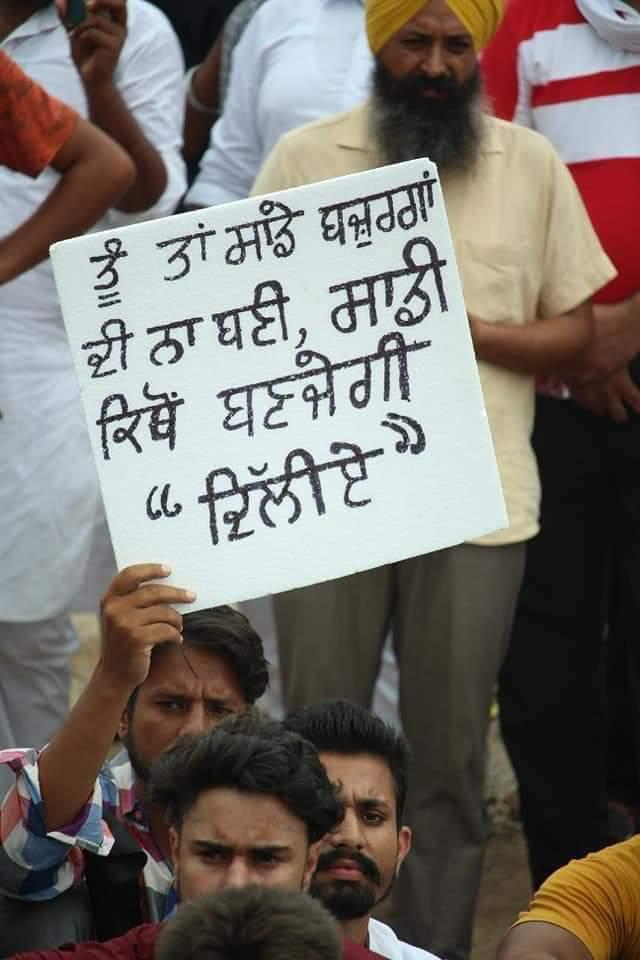 ਤੂੰ ਤਾਂ ਸਾਡੇ ਬਜ਼ੁਰਗਾਂ
ਦੀ ਨਾ ਬਣੀ, ਸਾਡੀ
ਕਿਥੋਂ ਬਣਜੇਗੀ
“ ਦਿੱਲੀਏ ”